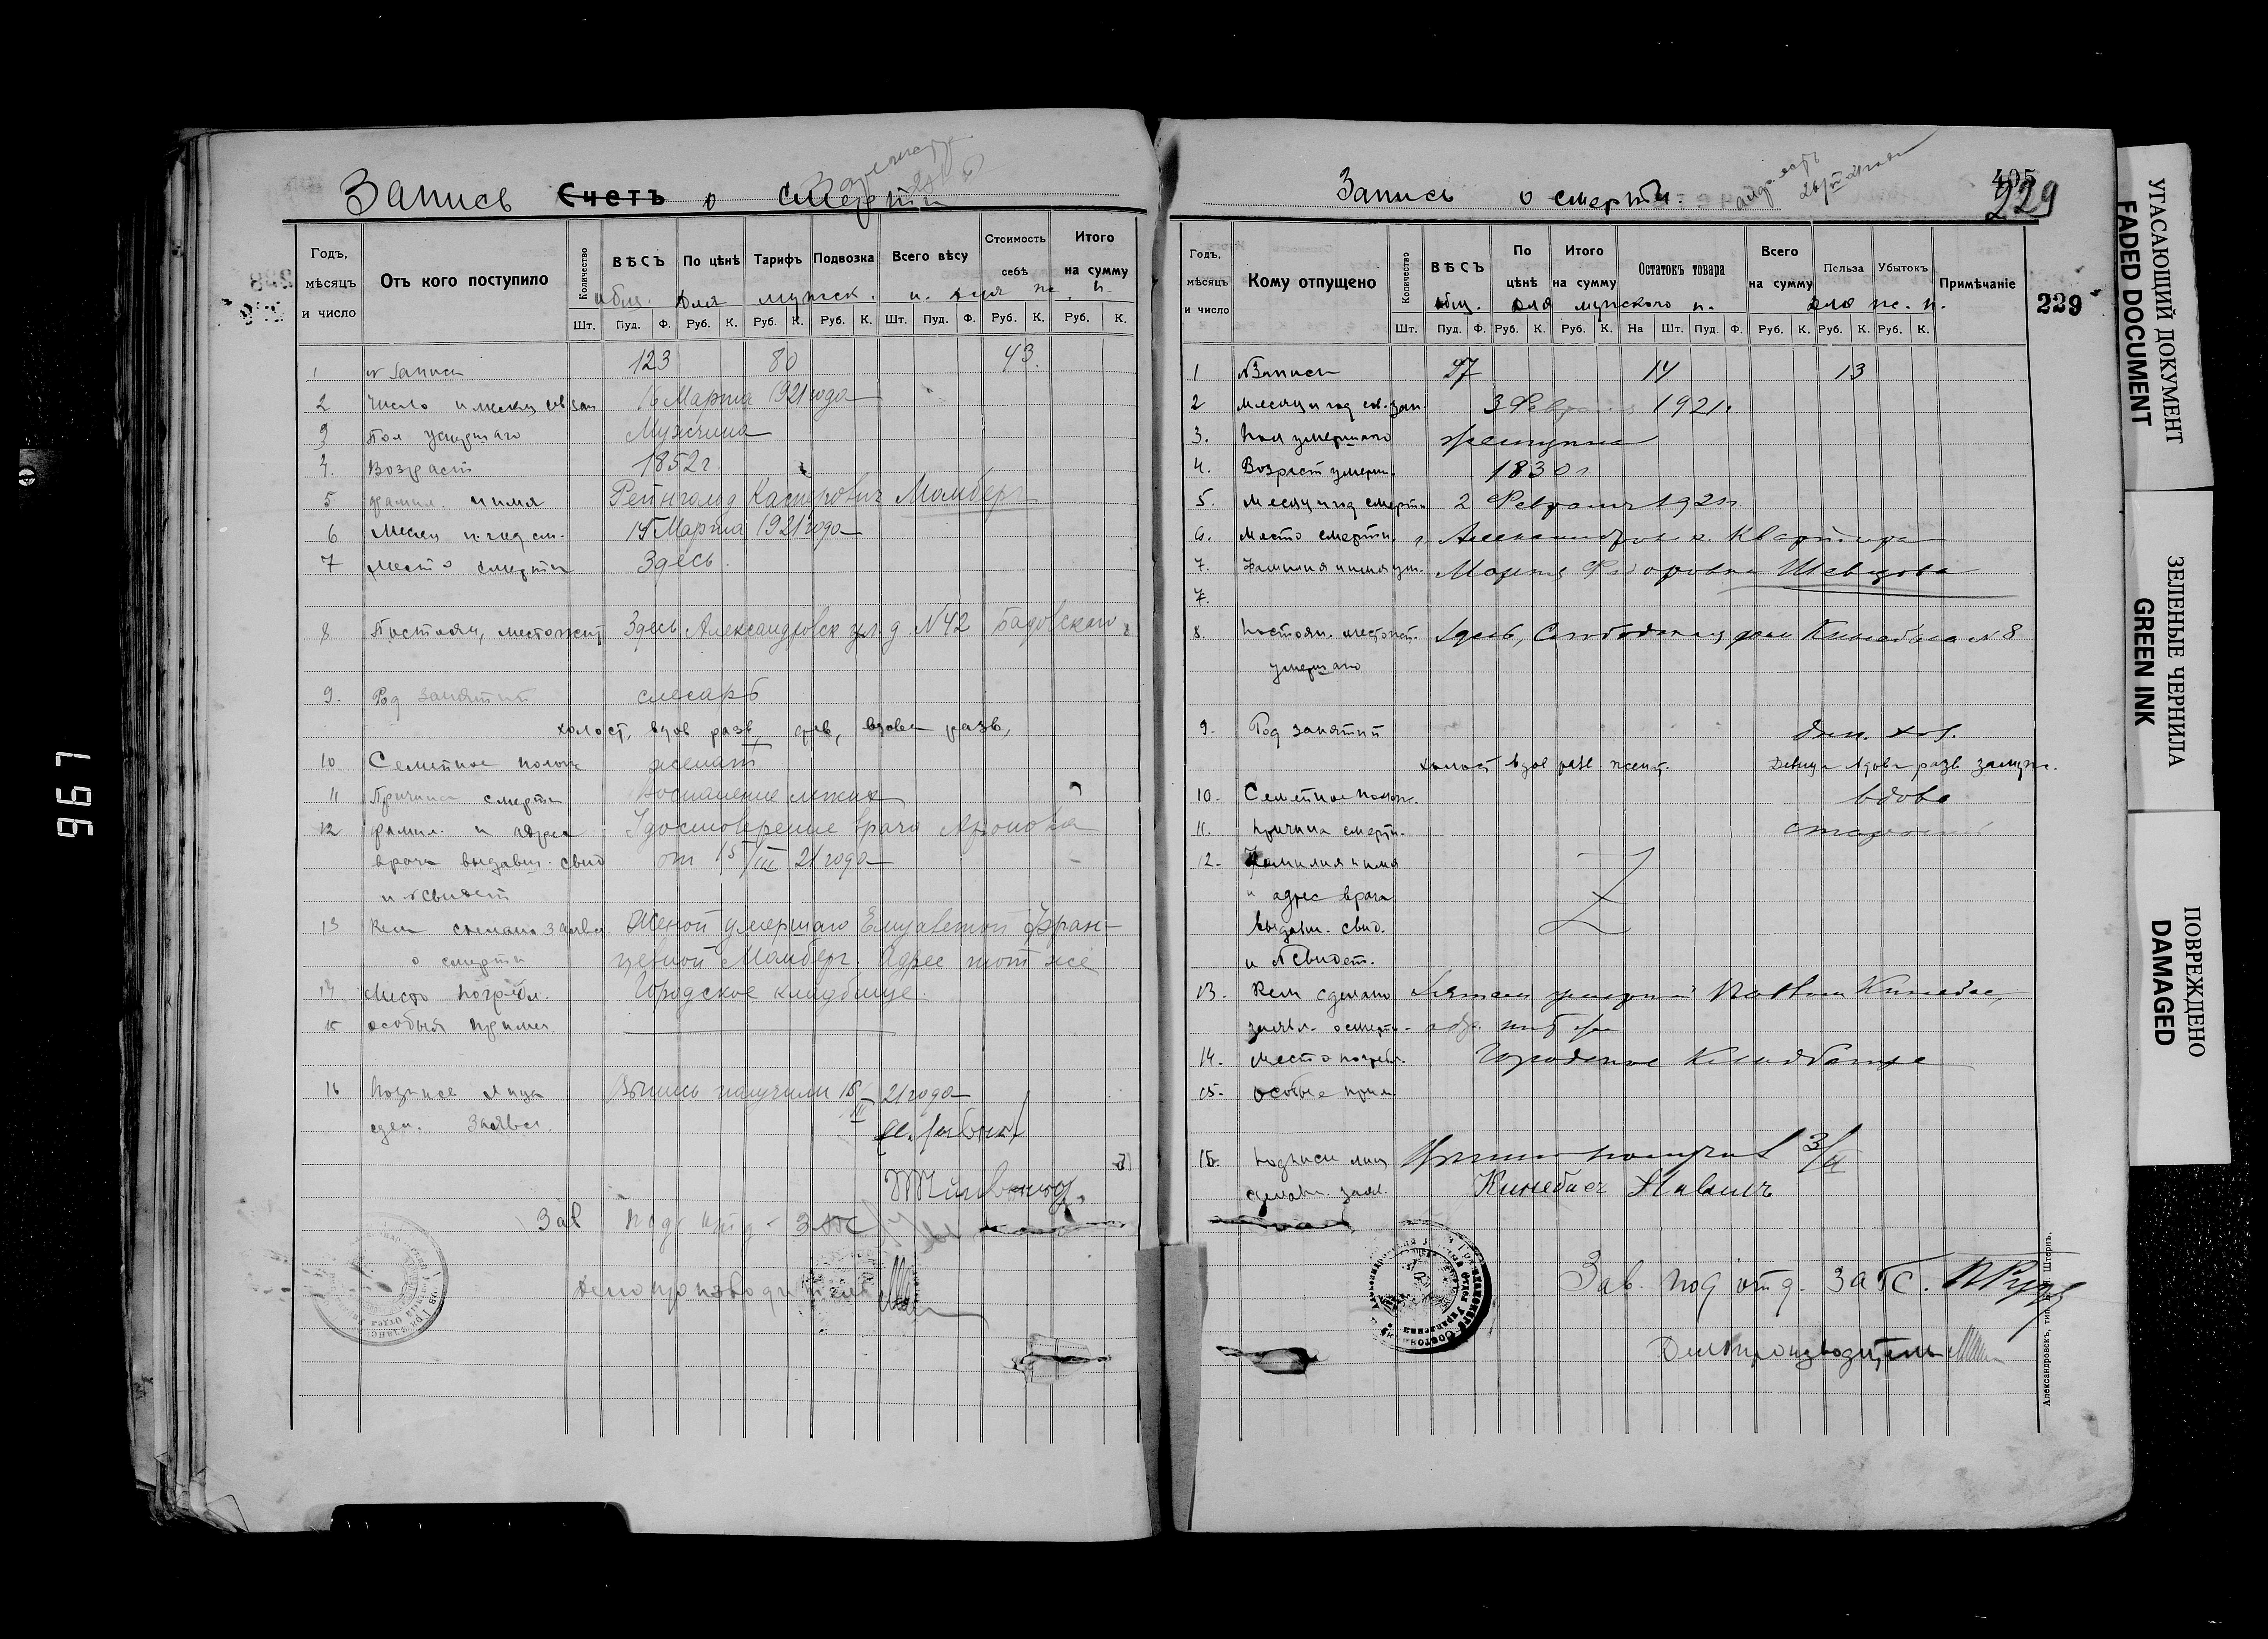 Запись Счетъ о смерти
Годъ, мѣсяцъ и число
Отъ кого поступило
Количество
ВѢСЪ
По цѣнѣ
Тарифъ
Подвозка
Всего вѣсу
Стоимость себѣ
Итого на сумму
общ. для мужск. п. для ж. п.
Шт. Пуд. Ф. Руб. К. Руб. К. Руб. К. Шт. Пуд. Ф. Руб. К. Руб. К.
1 № записи 123 80 43.
2 Число и месяц 16 Марта 1921 года
3 Пол умершаго Мужчина
4. Возраст 1852 г
5 фамил. и имя Рейнгольд Касперович Мамберг
6 Месяц и год см. 15 Марта 1921 года
7 место смерти Здесь.
8 Постоян. местожит Здесь Александровск ул. д. №42 Бадовского
9. Род занятий слесарь
холост, вдов разв, дев, вдова разв,
10 Семейное полож женат
11 Причина смерти Воспаление легких
12 фамил. и адрес Удостоверение врача Аронова
врача выдавш. свид от 15/III 21 года
и № свидет
13 Кем сделано заявл Женой умершаго Елизаветой Фран-
о смерти цевной Мамберг. Адрес тот же
14 Место погребл. Городское кладбище.
15 особыя примеч
16 Подпись лица Выпись получили 15/III 21 года
сдел. Заявл.
Зав под отд. ЗАГС
Делопроизводитель
Запись о смерти.
405
229
Годъ, мѣсяцъ и число
Кому отпущено
Количество
ВѢСЪ
По цѣнѣ
Итого на сумму
Остатокъ товара
Всего на сумму
Польза
Убытокъ
Примѣчаніе
229
общ. для мужского п. для ж. п.
Шт. Пуд. Ф. Руб. К. Руб. К. На Шт. Пуд. Ф. Руб. К. Руб. К. Руб. К.
1 № Записи 27 14 13
2 месяц и год 3 Февраля 1921 г.
3. Пол умершаго женщина
4. Возраст умерш. 1830 г
5. месяц и год смерти 2 Февраля 1921 г
6. Место смерти г. Александровск. Квартира
7. Фамилия и имя ум. Мария Федоровна Шевцова
7.
8. постоян. местожит. Здесь, Слободская дом Кинебаса №8
умершаго
9. Род занятий дом. хоз.
холост вдов разв женат. Девица Вдова разв замужн.
10. Семейное полож. вдова
11. причина смерти. старость
12. Фамилия и имя
и адрес врача
выдавш. свид.
и № свидет.
13. Кем сделано Зятем умершей Павлом Кинебас,
заявл. о смерти адр. тот же
14. место погребл. Городское Кладбище
15. особые прим.
16. подписи лиц Выпись получил 3/II
сделавш. заявл. Кинебас Павел
Зав. под отд. ЗАГС.
Делопроизводитель
УГАСАЮЩИЙ ДОКУМЕНТ
FADED DOCUMENT
ЗЕЛЕНЫЕ ЧЕРНИЛА
GREEN INK
ПОВРЕЖДЕНО
DAMAGED
967